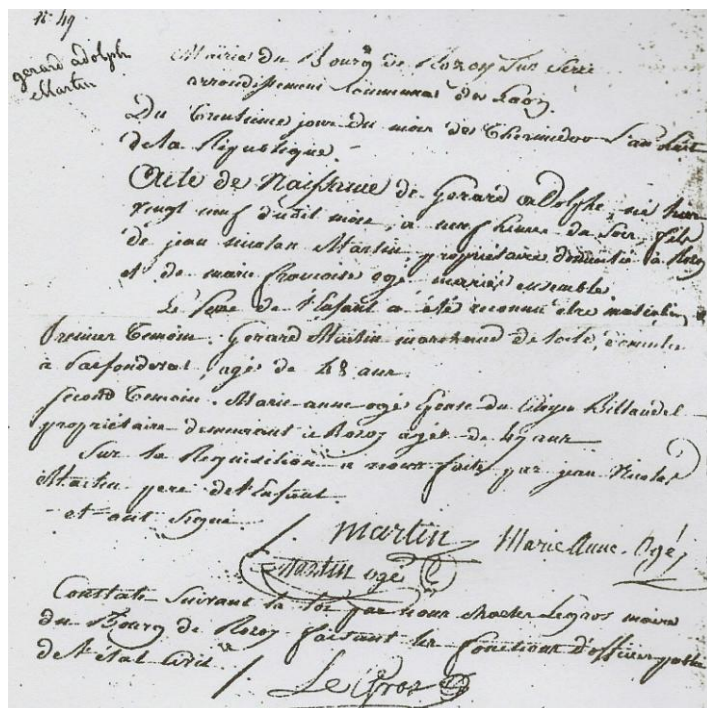 n° 49
gerard adolph
Martin
Mairie du Bourg de Rozoy Sur Serre
arrondissement Communal de Laon.
Du trentieme jour du mois de Thermidor l'an huit
de la République.
Acte de Naissance de Gerard adolphe, né hier
vingt neuf dudit mois, a neuf heures du Soir, fils
de jean nicolas Martin, propriétaire domicilié à Rozoy
et de marie françoise ogé mariés ensemble,
Le Sexe de l'Enfant a été reconnu être masculin,
Premier temoin. Gerard Martin marchand de toile, domicilié
à Parfondeval, agé de 48 ans.
Second temoin. Marie anne ogé Epouse du Citoyen Billaudel
propriétaire demeurant à Rozoy agée de 49 ans
Sur la Requisition a nous faite par jean Nicolas
Martin pere de l'Enfant.
et ont signé.
martin Marie Anne Ogé
martin ogé
Constaté Suivant la loi par nous Legros maire
du Bourg de Rozoy faisant les fonctions d'officier
de l'état Civil
LeGros